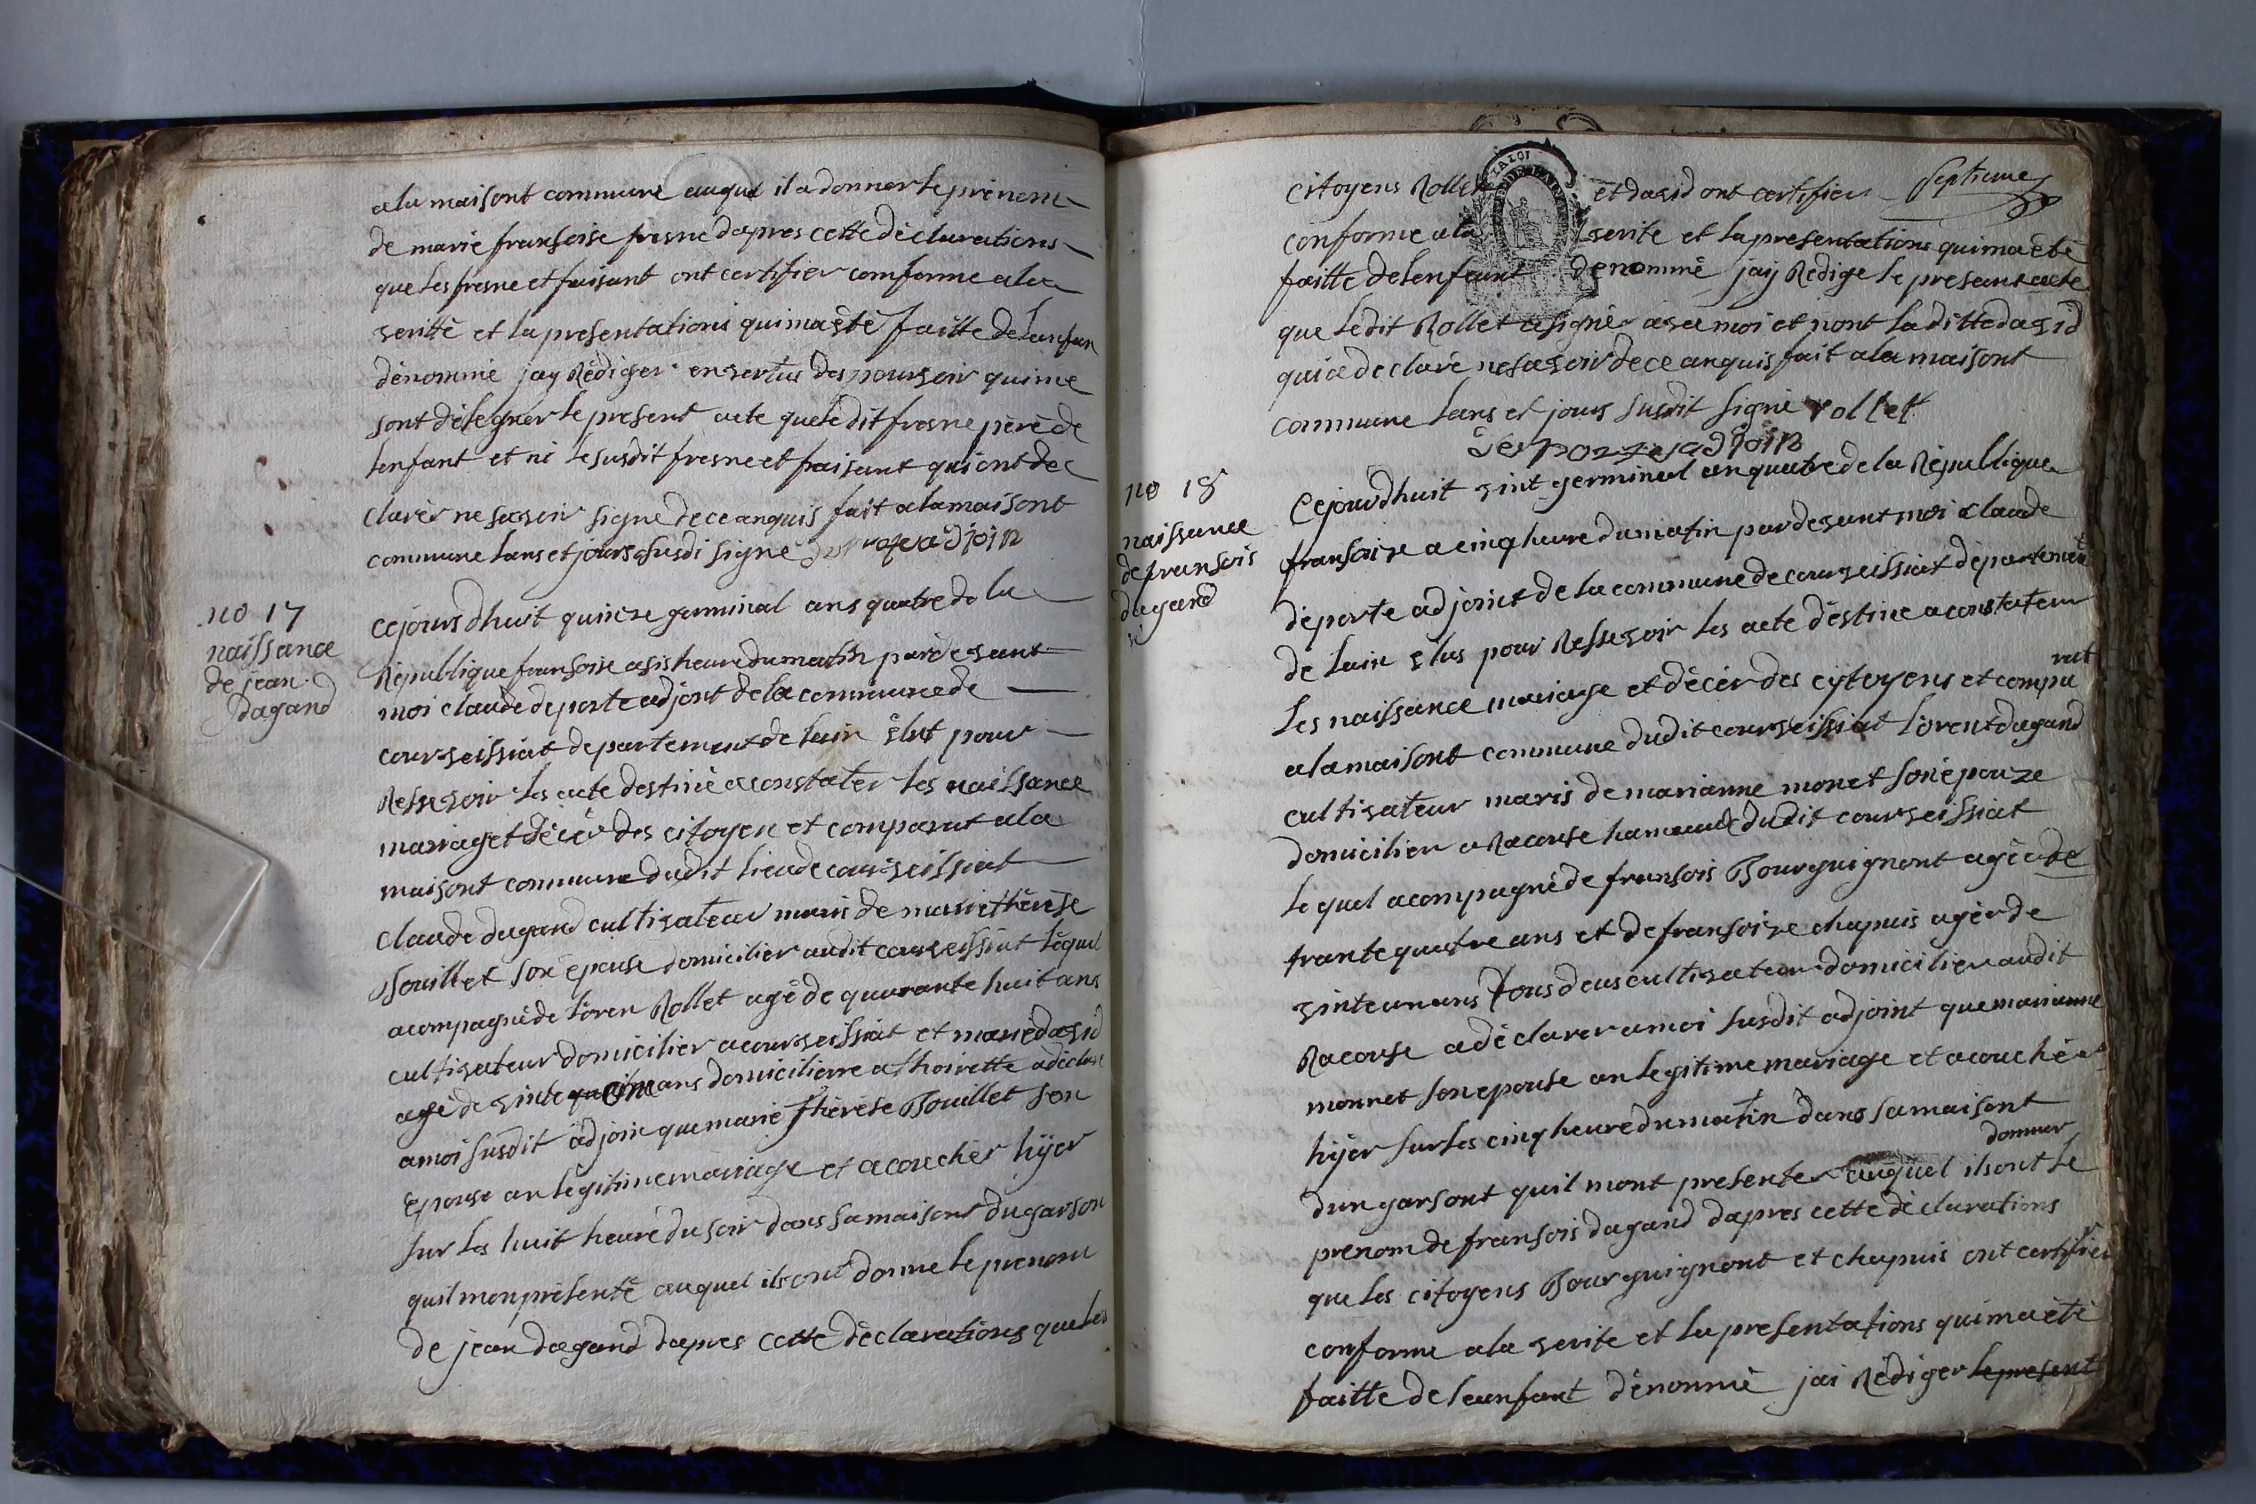 a la maisont commune auquel il a donner le prènom
de marie fransoise fresne dapres cette dèclarations
que les fresne et faisant ont certifier comforme a la
veritté et la presentations qui ma ètè faitte de lanfan
dènommé jay Rèdiger en vertus des pouvoir qui me
sont dèlegner le present acte que le dit fresne père de
lenfant et ni le susdit fresne et faisant qui ont dec
clarèr ne savoir signe de ce anquis fait a la maisont
commune lans et jours susdi signe deporte adjoin
no 17
naissance
de jean
dagand
cejours dhuit quinze germinal ans quatre de la
Rèpublique fransoise a sis heure du matin parde vant
moi claude deporte adjont de la commune de
courveissiat departement de lain èlut pour
Ressevoir les acte destiné a constater les naissance
mariage et dècèr des citoyen et comparut a la
maisont commune dudit lieu de courveissiat
claude dagand cultivateur maris de marie thèrèse
Bouillet son èpouse domicilier audit courveissiat lequel
acompagné de loren Rollet agè de quarante huit ans
cultivateur domicilier a courveissiat et marie david
agè de vinte ans domicilierre a thoirette a dèclare
a moi susdit adjoin que marie thèrèse Bouillet son
epouse an lègitime mariage et a coucher hÿer
sur les huit heure du soir dans sa maisont du garson
quil mon prèsentè auquel ils ont donne le prenom
de jean dagand dapres cette dèclarations que les
septieme
citoyens Rollet et david ont certifier
conforme a la verite et la presentations qui ma ètè
faitte de lenfant denommè jaÿ Rèdige le present acte
que ledit Rollet a signèr avec moi et nont la ditte david
qui a declarè ne savoir de ce anquis fait a la maisont
commune lans et jours susdit signè rollet
deporte adjoin
no 18
naissance
de fransois
dagand
cejourdhuit vint germinal an quatre de la Rèpublique
fransoize a cinq heure du matin pardevant moi claude
dèporte adjoint de la commune de courveissiat dèpartement
de lain elus pour Ressevoir les acte dèstine a constater
les naissance mariage et dècèr des cytoyens et compa
rut
a la maisont commune dudit courveissiat lorent dagand
cultivateur maris de marianne monet son èpouze
domicilier a Racouse hameaude dudit courveissiat
le quel acompagnè de fransois Bourguignont agèe de
trante quatre ans et de fransoize chapuis agèr de
vinte un ans tous deus cultivateur domicilier audit
Racouse a dèclarer a moi susdit adjoint que marianne
monnet son epouse an legitime mariage et a couchèe
hÿèr sur les cinq heure du matin dans sa maisont
donner
dun garsont quil mont presenter auquel ils ont le
prenom de fransois dagand dapres cette dèclarations
que les citoyens Bourguignont et chapuis ont certifier
conforme a la verite et la presentations qui ma ètè
faitte de leanfant dènommè jai Rèdiger le present